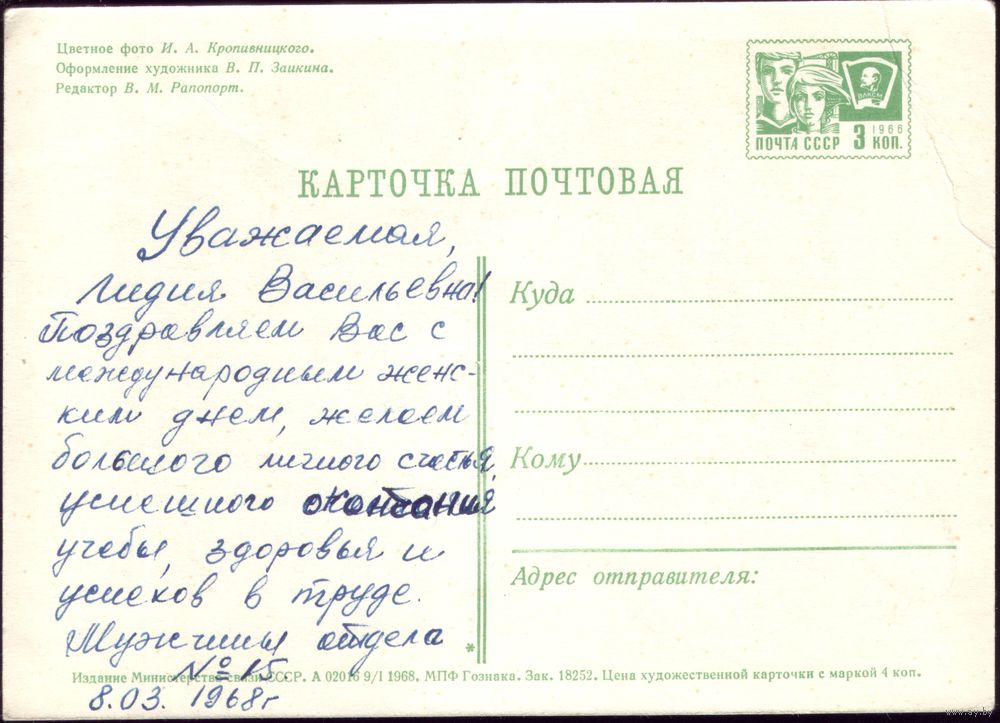 Цветное фото И. А. Кропивницкого.
Оформление художника В. П. Заикина.
Редактор В. М. Рапопорт.
ВЛКСМ
1966
ПОЧТА СССР 3 КОП.
КАРТОЧКА ПОЧТОВАЯ
Уважаемая,
Лидия Васильевна!
Поздравляем Вас с
международным женс-
ким днем, желаем
большого личного счастья,
успешного окончания
учебы, здоровья и
успехов в труде.
Мужчины отдела
№ 15.
8.03. 1968г
Куда
Кому
Адрес отправителя:
*
Издание Министерства связи СССР. А 02016 9/I 1968. МПФ Гознака. Зак. 18252. Цена художественной карточки с маркой 4 коп.
www.ay.by